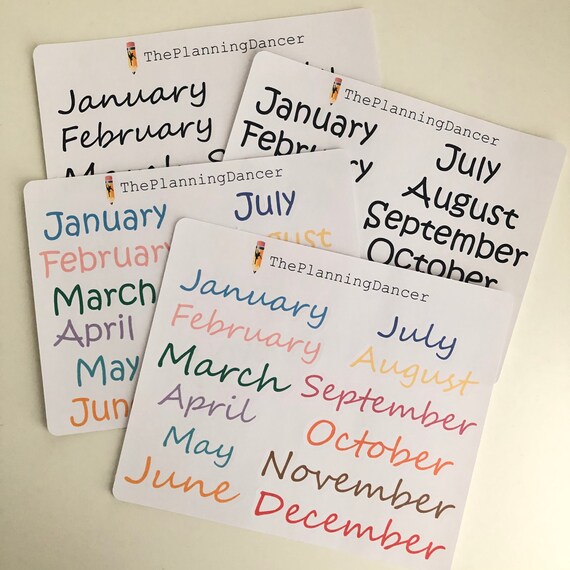 ThePlanningDancer
January
February
March
ThePlanningDancer
January
February
July
August
September
October
ThePlanningDancer
January
February
March
April
May
June
July
August
ThePlanningDancer
January
February
March
April
May
June
July
August
September
October
November
December